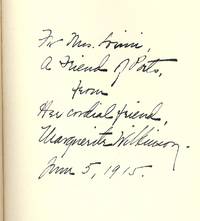 For Mrs. Linn,
A Friend of Poets,
from
Her cordial friend,
Marguerite Wilkinson.
June 5, 1915.